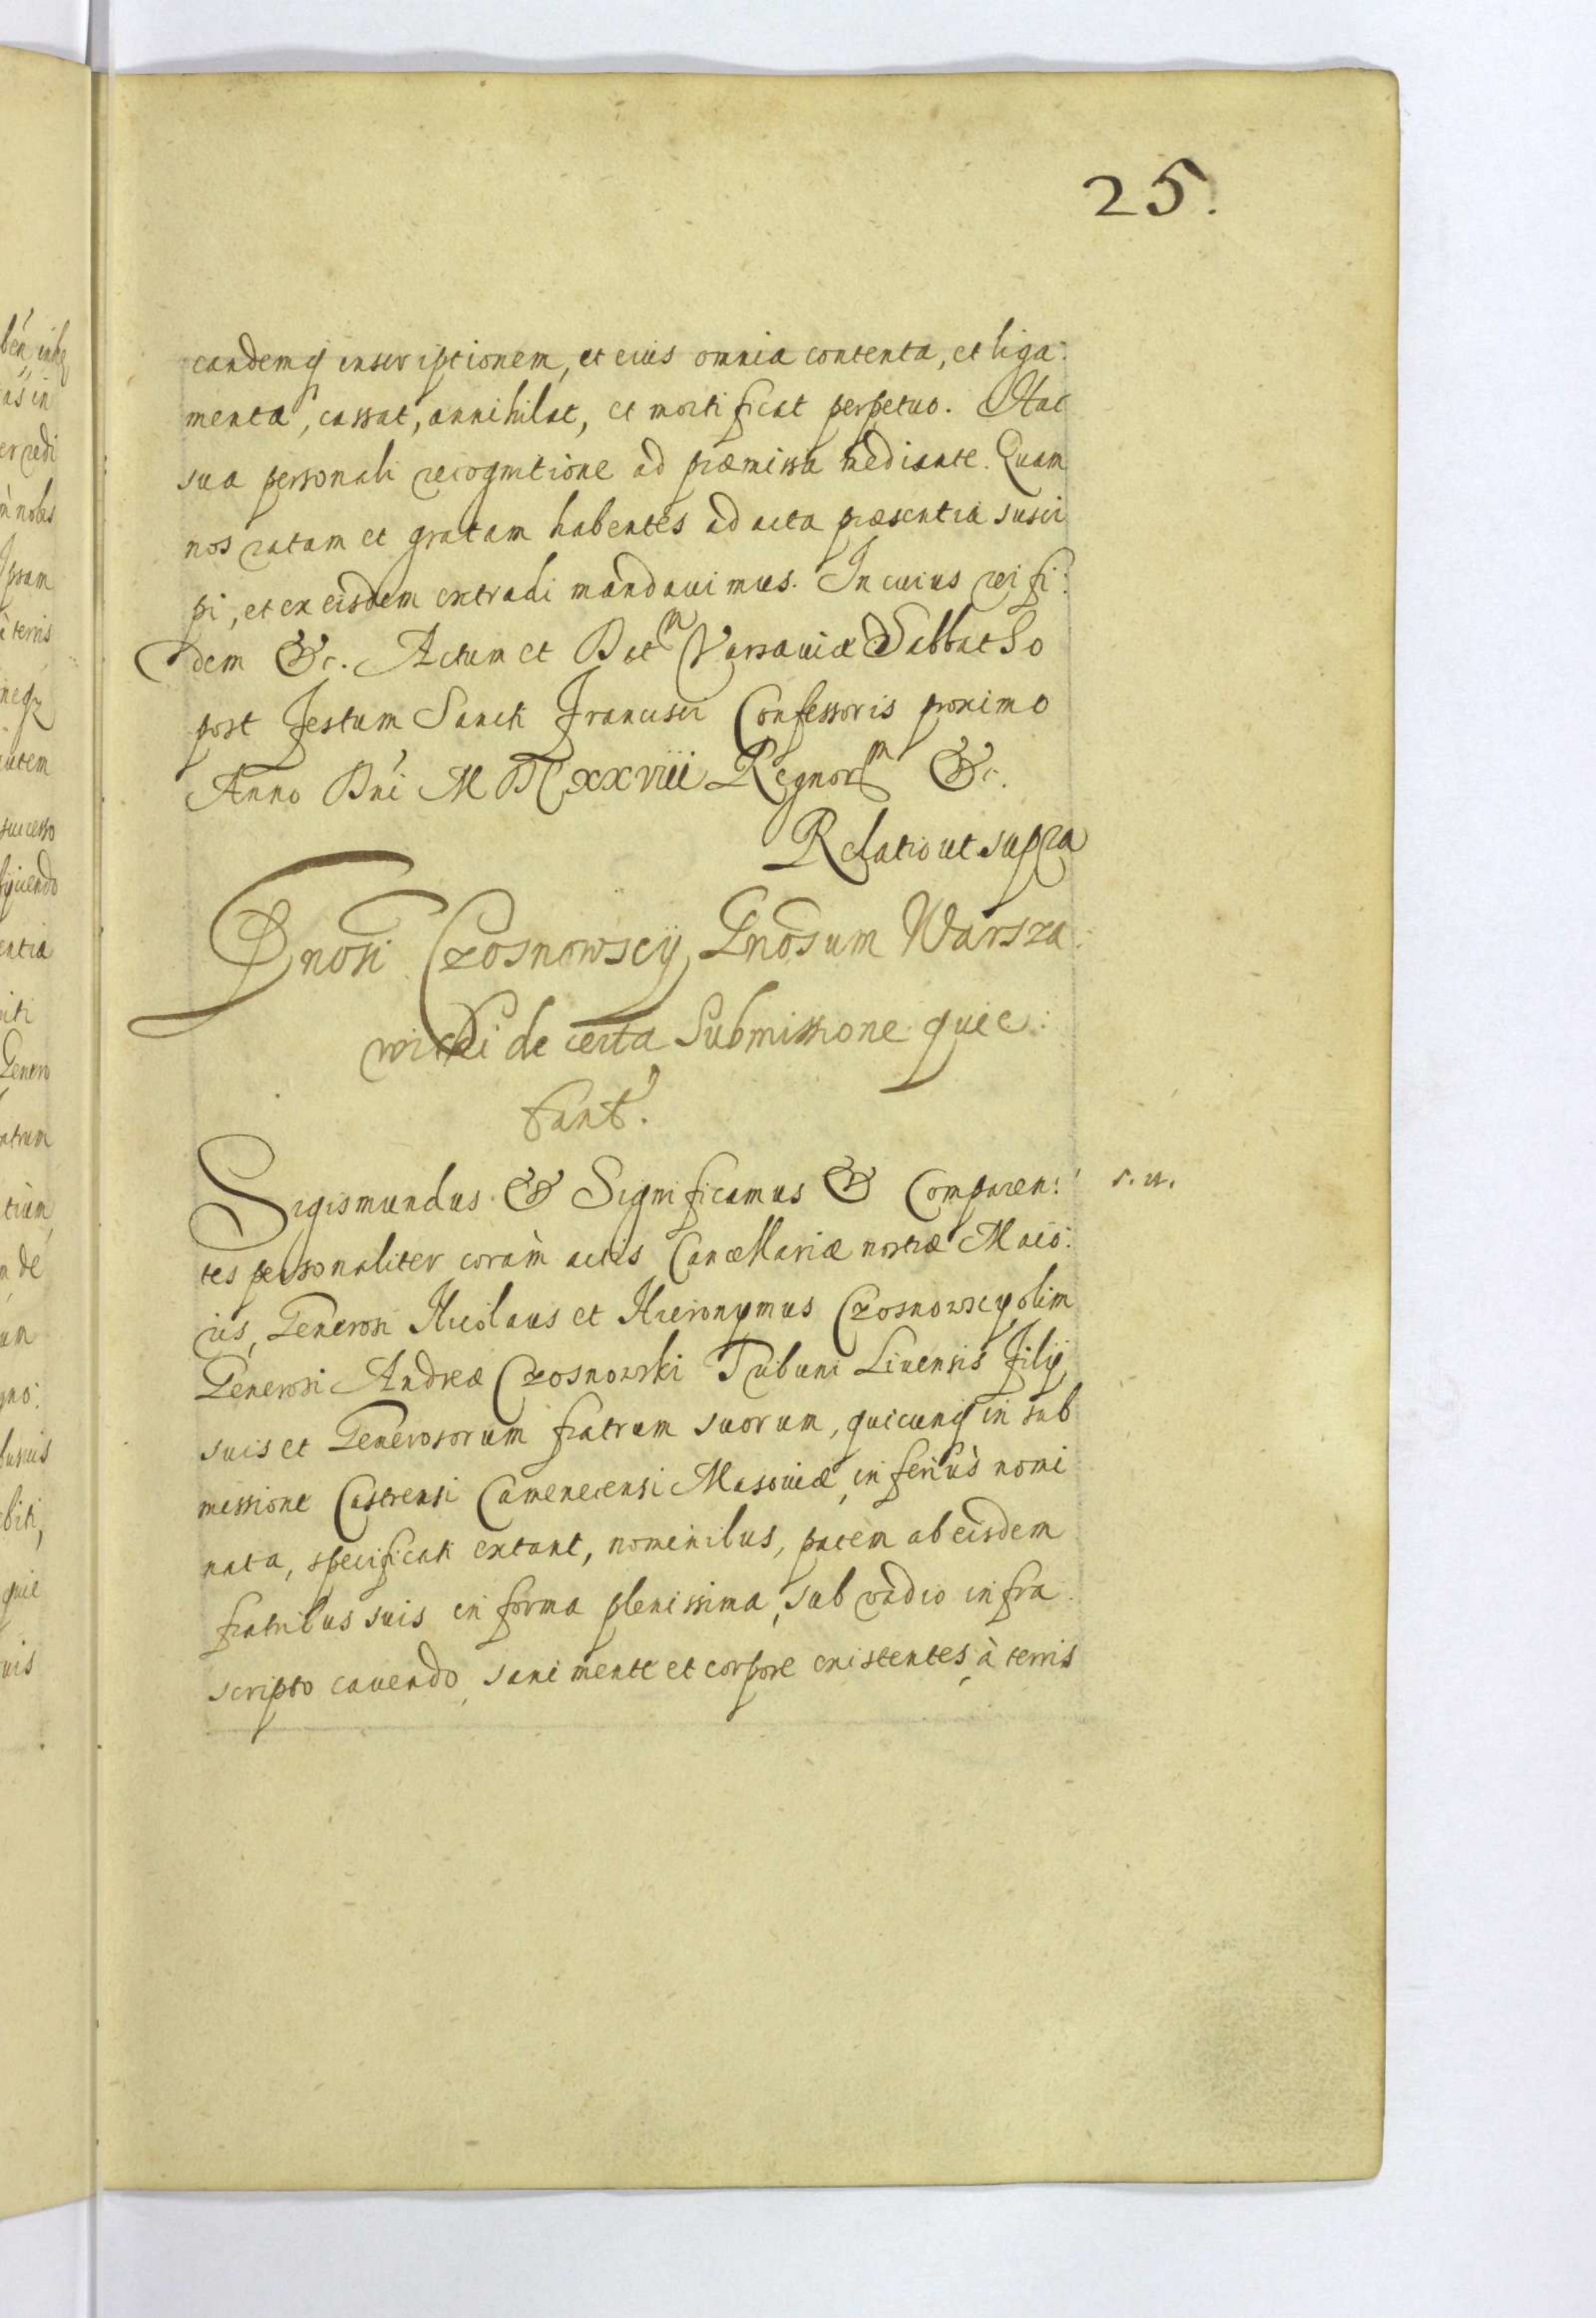 25.
eandemq inscriptionem, et eius omnia contenta, et liga:
menta, cassat, annihilat, et mortificat perpetuo. Hac
sua personali recognitione ad præmissa mediante. Quam
nos ratam et gratam habentes ad acta præsentia susci
pi, et ex eisdem extradi mandauimus. In cuius rei fi:
dem &c. Actum et Datm Varsauiæ Sabbatho
post Festum Sancti Francisci Confessoris proximo
Anno Dni MDCXXVIII Regnorm &c.
Relatio ut supra
Gnosi Czosnowscy Gnosum Warsza:
wicki de certa Submissione quie:
tant.
Sigismundus & Significamus & Comparen:
s. u.
tes personaliter coràm actis Cancellariæ nostræ Maio:
ris, Generosi Nicolaus et Hieronymus Czosnowscy olim
Generosi Andreæ Czosnowski Tribuni Liuensis Filij
suis et Generosorum fratrum suorum, quicunq in sub
missione Castrensi Camenecensi Masouiæ, inferiùs nomi
nata, specificati extant, nominibus, pacem ab eisdem
fratribus suis in forma plenissima, sub vadio infra
scripto cauendo, sani mente et corpore existentes, à terris